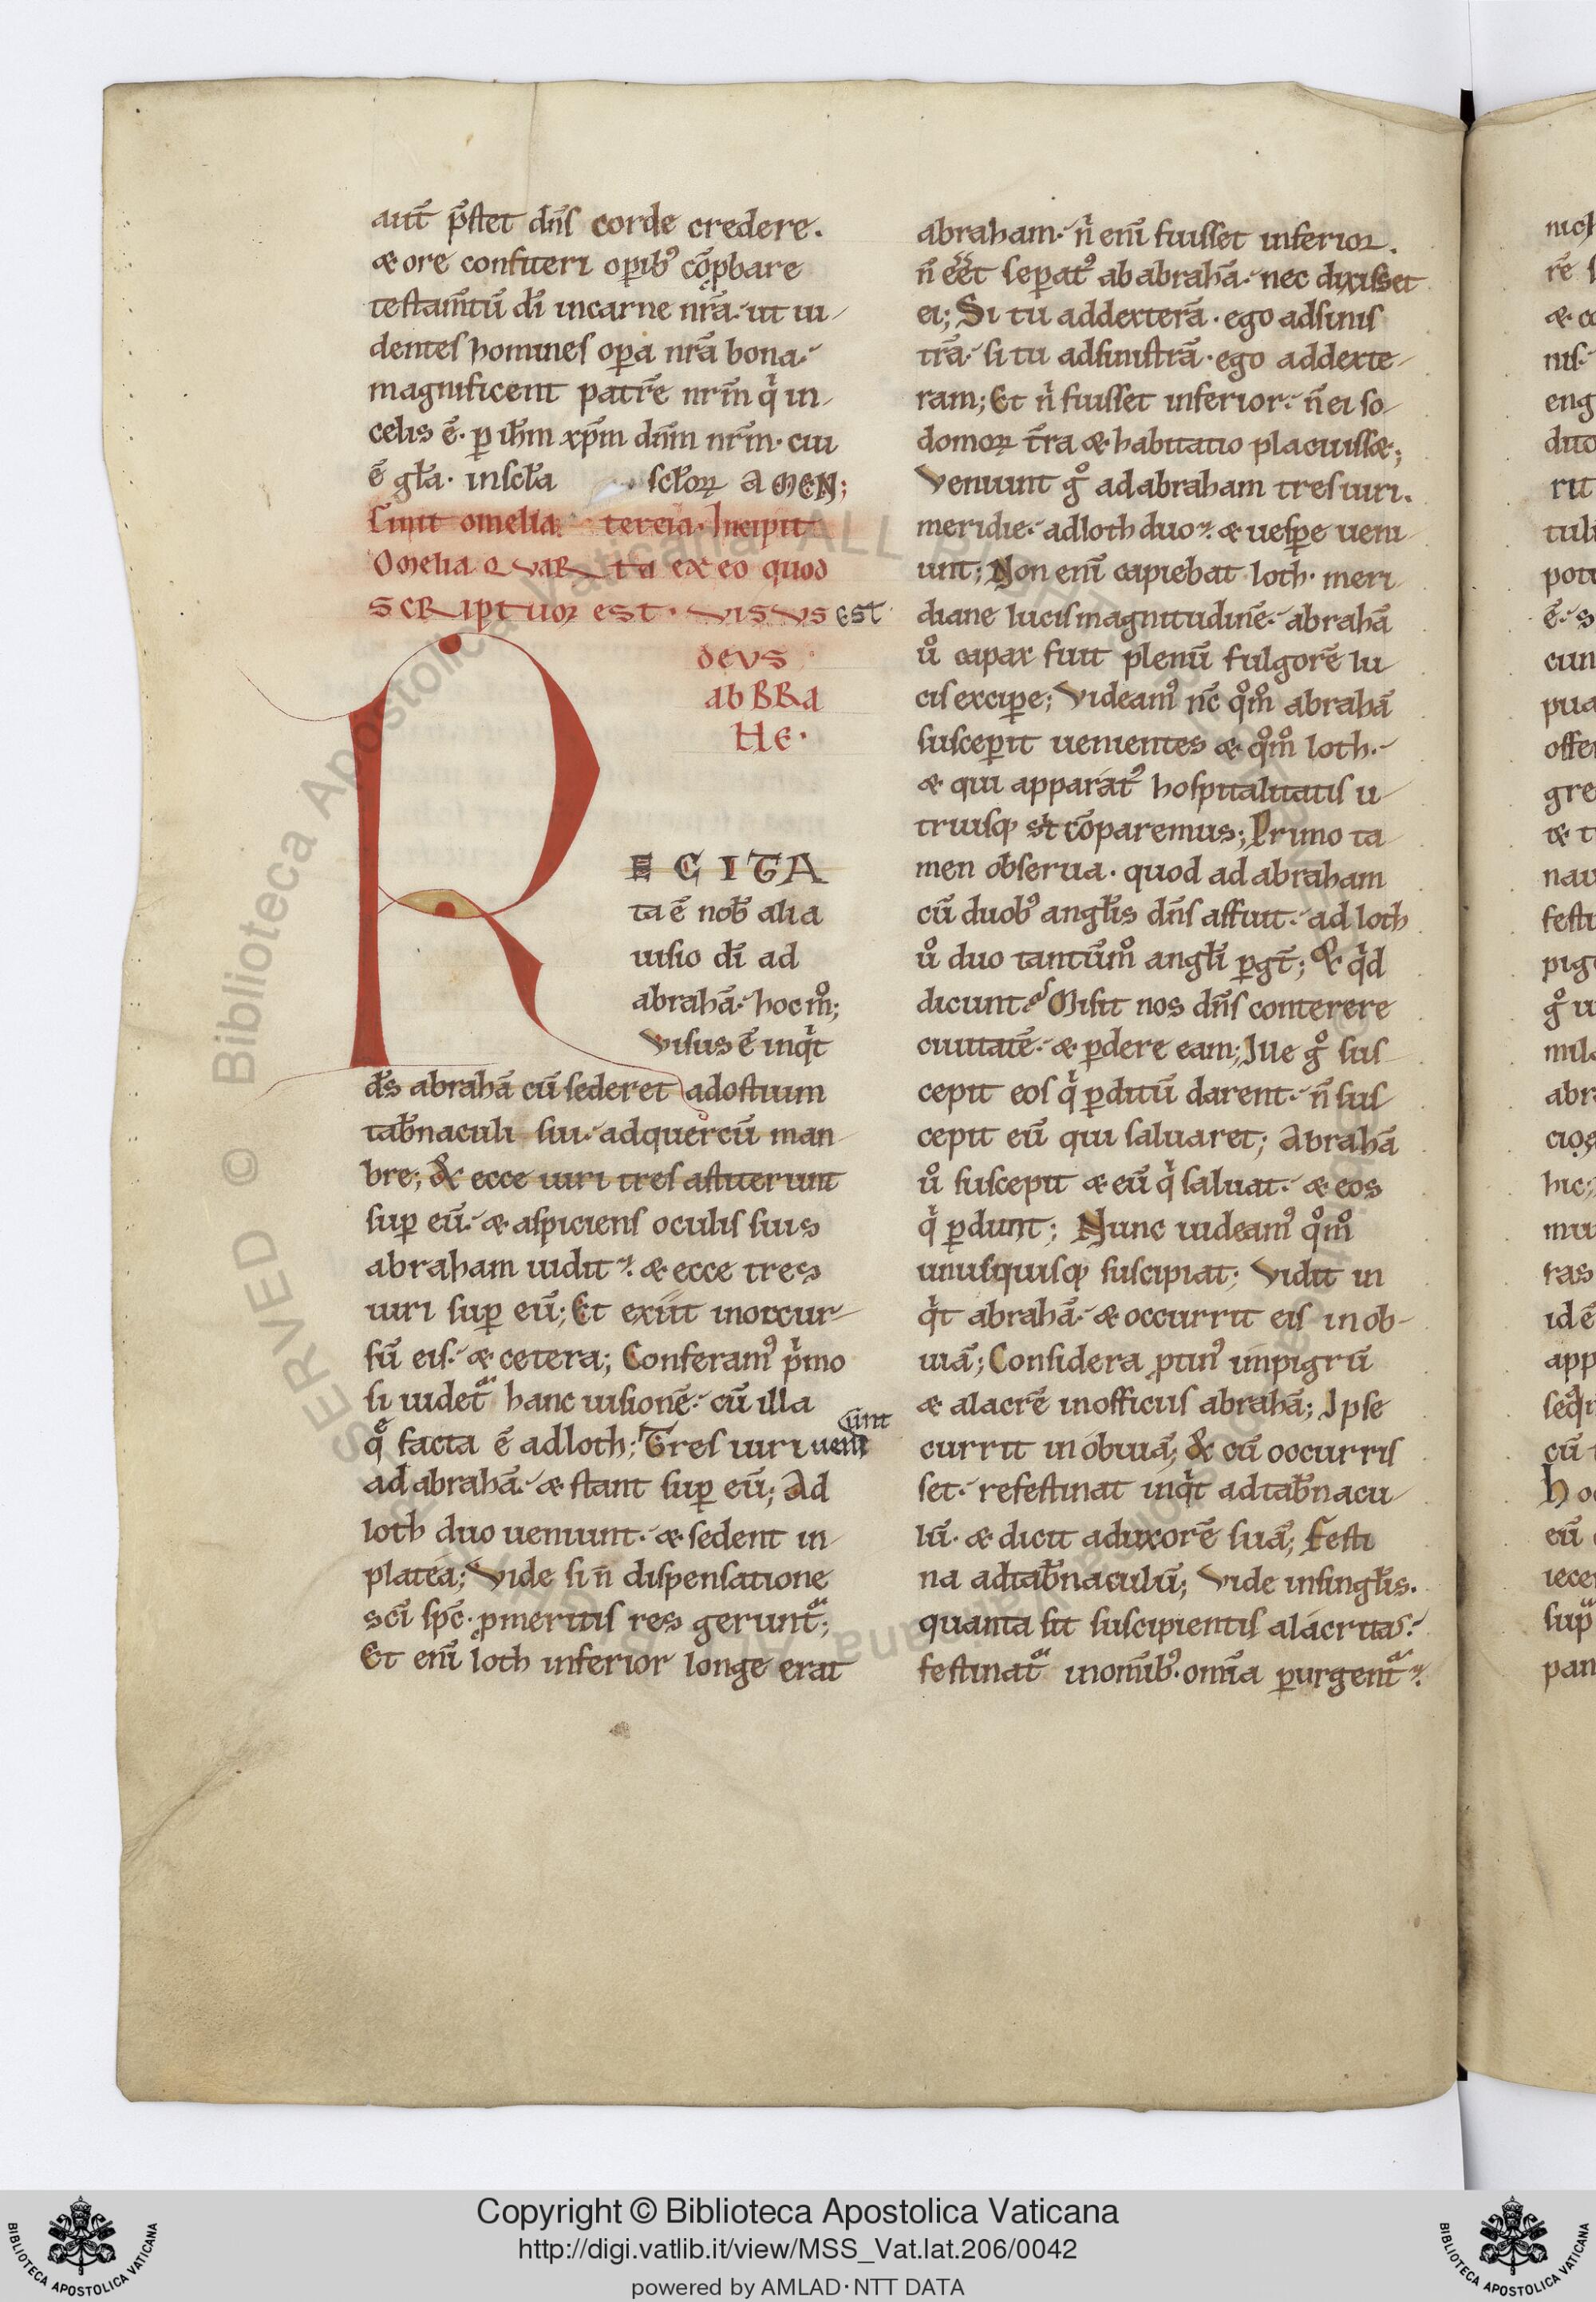 aut̄ p̄stet dn̄s corde credere.
& ore confiteri op̱ib᾽ cōp̱bare
testam̄tū dī incarne nr̄a. ut ui-
dentes homines op̱a nr̄a bona.
magnificent patrē nrm̄ qͥ in-
celis ē. p̱ ih̄m xp̄m dn̄m nrm̄. cui
ē gl̄a. inscl̄a scl̄oꝝ AMEN;
Finit omelia tercia. Incipit
Omelia QVARta ex eo quod
SCRIPtuꝝ est. VISVS est
deVS
abBRa
HE.
RECITA
ta ē nob̄ alia
uisio dī ad
abrahā. hoc mͦ;
Visus ē inqͥt
ds̄ abrahā cū sederet adostium
tab̄naculi sui. adquercū man-
bre; & ecce uiri tres astiterunt
sup̱ eū. & aspiciens oculis suis
abraham uidit. & ecce tres
uiri sup̱ eū; Et exiit inoccur-
sū eis. & cetera; Conferam᾽ pͥmo
si uidet᷑ hanc uisionē. cū illa
q̄ facta ē adloth; Tres uiri ueniunt
ad abrahā. & stant sup̱ eū; Ad
loth duo ueniunt. & sedent in-
platea; Vide si n̄ dispensatione
scī spc̄. p̱meritis res gerunt᷑;
Et enī loth inferior longe erat
abraham. nͥ enī fuisset inferior.
n̄ eēt sep̱at᾽ ab abrahā. nec dixisset
ei; Si tu addexterā. ego adsinis
trā. si tu adsinistrā. ego addexte-
ram; Et nͥ fuisset inferior. n̄ ei so-
domoꝝ t̄ra & habitatio placuiss&;
Veniunt gͦ ad abraham tres uiri.
meridie. adloth duo. & uesp̱e ueni-
unt; Non enī capiebat loth. meri-
diane lucis magnitudinē. abrahā
uͦ capax fuit plenū fulgorē lu-
cis excip̱e; Videam᾽ nc̄ qͦmͦ abrahā
suscep̱it uenientes & qͦmͦ loth.
& qui apparat᾽ hospitalitatis u-
triusq; st̄ cōparemus; Primo ta-
men observa. quod ad abraham
cū duob᾽ angl̄is dn̄s affuit. ad loth
uͦ duo tantūmͦ angl̄i p̱gt̄; & qͥd
dicunt. Misit nos dn̄s conterere
ciuitatē. & p̱dere eam; Ille gͦ sus-
cepit eos qͥ p̱ditū darent. n̄ sus-
cepit eū qui saluaret; Abrahā
uͦ suscepit & eū qͥ saluat. & eos
qͥ p̱dunt; Nunc uideam᾽ qͦmͦ
unusquisq; suscipiat; Vidit in
qͥt abrahā. & occurrit eis in ob-
uiā; Considera p̱tin᾽ impigrū
& alacrē inofficiis abrahā; Ipse
currit in obuiā; & cū occurris
set. refestinat inqͥt adtab̄nacu-
lū. & dicit aduxorē suā; Festi
na adtab̄naculū; Vide insingl̄is.
quanta sit suscipientis alacritas.
festinat᷑ inomīb᾽. omīa p̱urgent᷑.
Copyright © Biblioteca Apostolica Vaticana
http://digi.vatlib.it/view/MSS_Vat.lat.206/0042
powered by AMLAD·NTT DATA
BIBLIOTECA APOSTOLICA VATICANA
BIBLIOTECA APOSTOLICA VATICANA